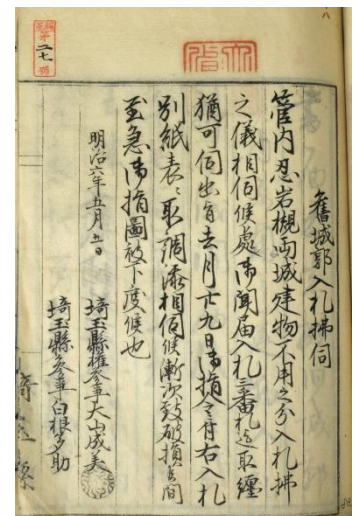 舊城郭入札拂伺
管内忍岩槻両城建物不用之分入札拂
之儀相伺候處御聞届入札三番札迄取纏
猶可伺出旨去月廿九日御指令有右入札
別紙表々取調添相伺候漸次致破損候間
至急御指圖被下度候也
明治六年五月五日
埼玉縣権参事大山成美
埼玉縣参事白根多助
第二七号